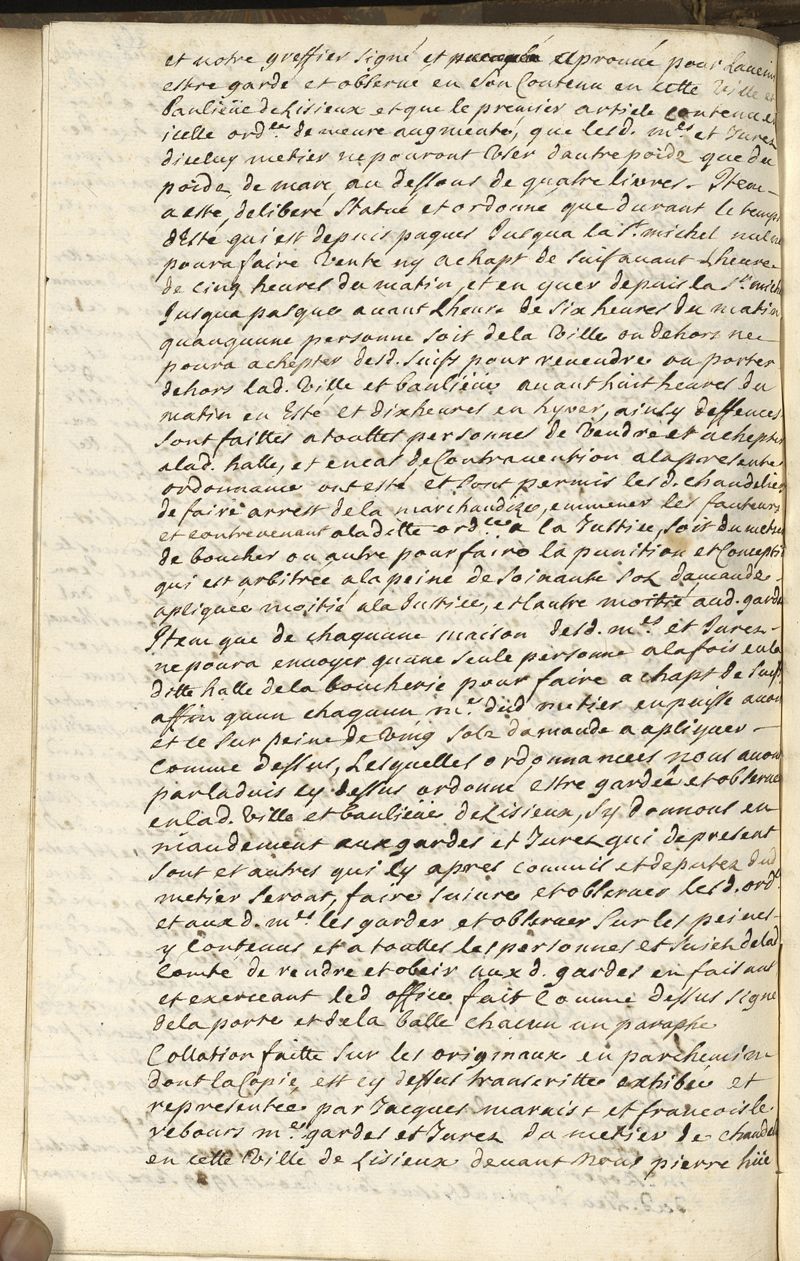 et notre greffier signé et aprouvé pour Lavenir
estre gardé et observé en son Contenu en cette Ville et
Banlieüe de Lisieux et que le premier article contenu en
icelle ord.ce demeure augmenté, que lesd. m.es et Jurez
diceluy metier ne pouront User dautre poide que du
poide de marc au dessous de quatre livres. Item
a esté deliberé statué et ordonné que durant le temps
dEsté qui est depuis paques Jusqua la S.t michel nul ne
poura faire Vente ny achapt de suif avant Lheure
de cinq heures du matin, et en yver depuis la S.t michel
Jusqua pasques avant Lheure de six heures du matin
quaucune personne soit de la Ville ou dehors ne
poura achepter desd. suifs pour revendre ou porter
dehors lad. Ville et banlieüe avant huit heures du
matin en Esté et dix heures en hyver, ainsy deffences
sont faittes a touttes personnes de Vendre et achepter
a lad. halle, et en cas de Contravention a la presente
ordonnance ont esté et sont permis lesd. chandeliers
de faire arrest de la marchandize, emmener les fauteurs
et contrevenant a la ditte ord.ce a la Justice, soit du metier
de boucher ou autre pour faire la punition et
qui est arbitrée a la peine de soixante solz damande
apliquée moitié a la Justice, et Lautre moitié aud. garde
Item que de chaquune maison desd. m.es et Jurez
ne poura envoyer quune seule personne a la fois en la
ditte halle de la boucherie pour faire achapt de suif
affin quun chaquun m.e dud metier en puisse avoir
et ce sur peine de Ving solz damande a apliquer
Comme dessus, Lesquelles ordonnances nous avons
par ladvis cy dessus ordonné estre gardée et observée
en lad. Ville et banlieüe de Lisieux, sy donnons en
mandement aux gardes et Jurez qui de present
sont et autres qui cy apres commis et deputez dud
metier seront, faire suivre et observer lesd. ord.ces
et aux d. m.es les garder et observer sur les peines
y contenus et a touttes les personnes et sujets de lad
Comté de rendre et obeir aux d. gardes en faisant
et exerceant led office fait Comme dessus signé
de la porte et de la balle chacun un paraphe
Collation faitte sur les originaux en parchemin
dont la Copie est cy dessus transcritte exhibée et
representée par Jacques marais et francois le
rebours m.es gardes et Jurez du metier de chandelier
en cette Ville de Lisieux devant Nous pierre hüe